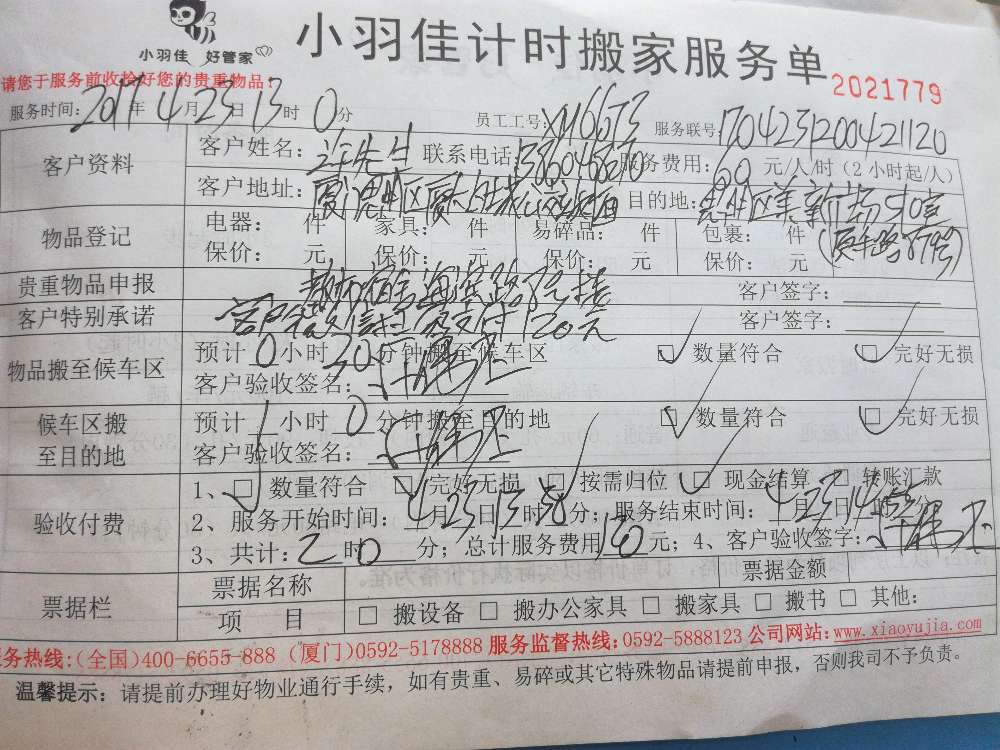 小羽佳 好管家
小羽佳计时搬家服务单
2021779
请您于服务前收捡好您的贵重物品!
服务时间: 2017年4月23日13时0分 员工工号: XM6673 服务联号: 1704231200421120
客户资料
客户姓名: 许先生 联系电话: 服务费用: 60元/人/时（2小时起/人）
客户地址: 目的地:
物品登记
电器: 件 家具: 件 易碎品: 件 包裹: 件
保价: 元 保价: 元 保价: 元 保价: 元
贵重物品申报 客户签字:
客户特别承诺 支付120元 客户签字:
物品搬至候车区
预计0小时30分钟搬至候车区 ☐ 数量符合 ☐ 完好无损
客户验收签名:
候车区搬至目的地
预计1小时0分钟搬至目的地 ☐ 数量符合 ☐ 完好无损
客户验收签名:
验收付费
1、☐ 数量符合 ☐ 完好无损 ☐ 按需归位 ☐ 现金结算 ☐ 转账汇款
2、服务开始时间: 4月23日13时 分; 服务结束时间: 4月23日14时 分;
3、共计: 2时0分; 总计服务费用 元; 4、客户验收签字:
票据栏
票据名称 票据金额
项 目 ☐ 搬设备 ☐ 搬办公家具 ☐ 搬家具 ☐ 搬书 ☐ 其他:
务热线:(全国)400-6655-888 (厦门)0592-5178888 服务监督热线:0592-5888123 公司网站:www.xiaoyujia.com
温馨提示: 请提前办理好物业通行手续，如有贵重、易碎或其它特殊物品请提前申报，否则我司不予负责。